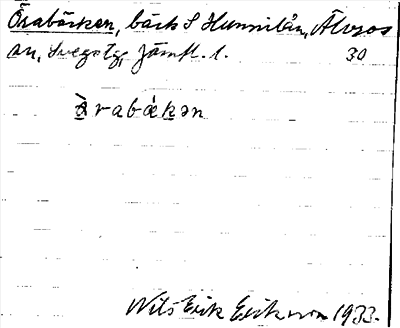 Örabäcken, bäck S Hunnilån, Älvros
an, Svegs tg, Jämtl. l. 30
ø̀rabǽkən
Nils Erik Erikson 1933.